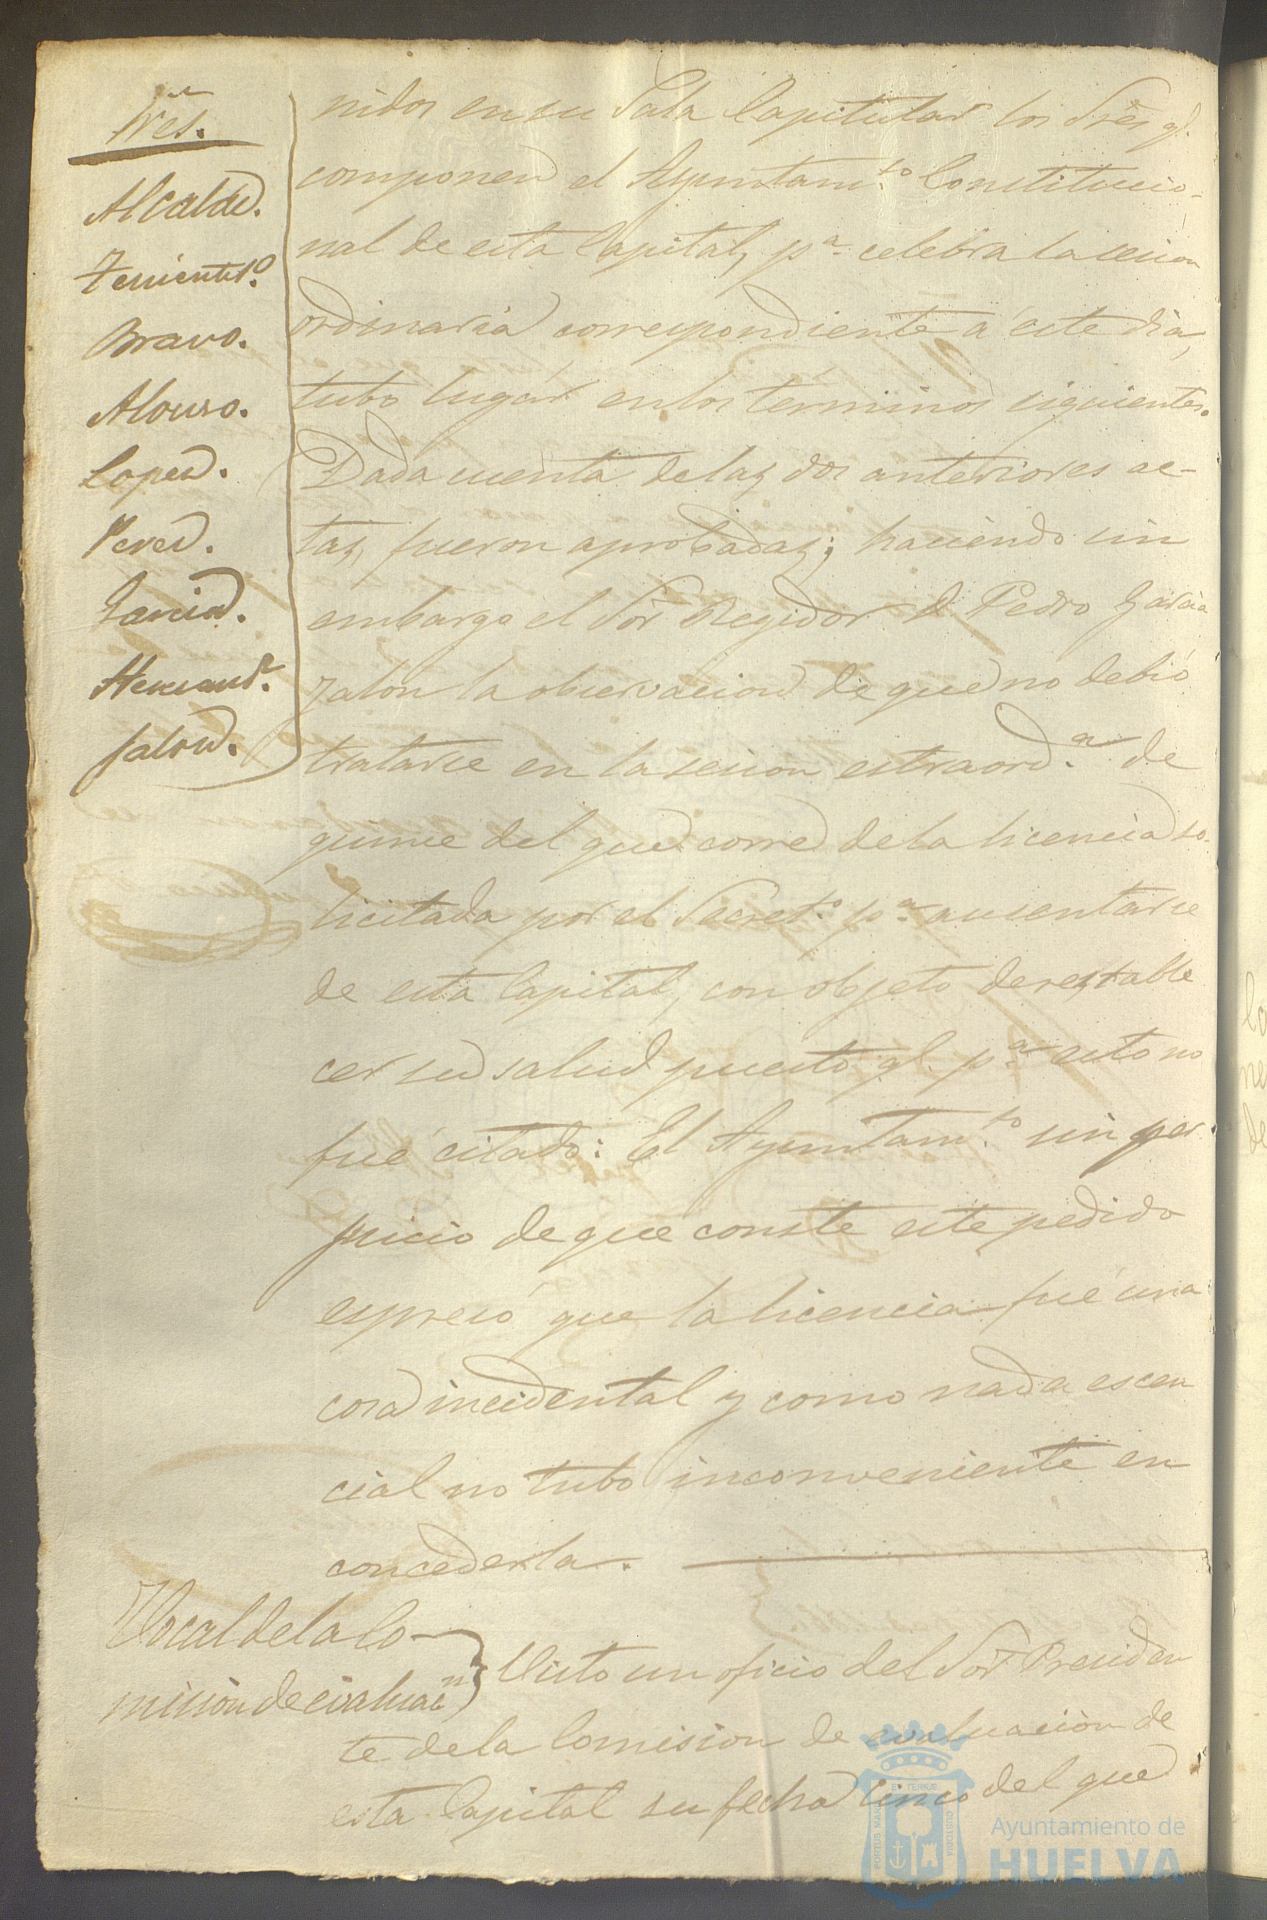 Sres.
Alcalde.
Teniente 1º.
Bravo.
Alonso.
Lopez.
Perez.
Garcia.
Hernand.z
Jalon.
nidos en su Sala Capitular los Sres q.
componen el Ayuntam.to Constitucio-
nal de esta Capital, p.a celebra la sesion
ordinaria correspondiente a este dia,
tubo lugar en los terminos siguientes.
Dada cuenta de las dos anteriores ac-
tas, fueron aprobadas; haciendo sin
embargo el Sor Regidor D Pedro Garcia
Jalon la observacion de que no debió
tratarse en la sesion estraord.a de
quince del que corre de la licencia so-
licitada por el Secret.o p.a ausentarse
de esta Capital, con objeto de restable
cer su salud puesto q. p.a esto no
fué citado: El Ayuntam.to sin per-
juicio de que conste este pedido
espresó que la licencia fué una
cosa incidental y como nada escen
cial no tubo inconveniente en
concederla.
Vocal de la Co-
mision de evaluac.n
Visto un oficio del Sor Presiden
te de la Comision de evaluacion de
esta Capital su fecha cinco del que
PORTUS MARIS ET TERRAE CUSTODIA
Ayuntamiento de
HUELVA